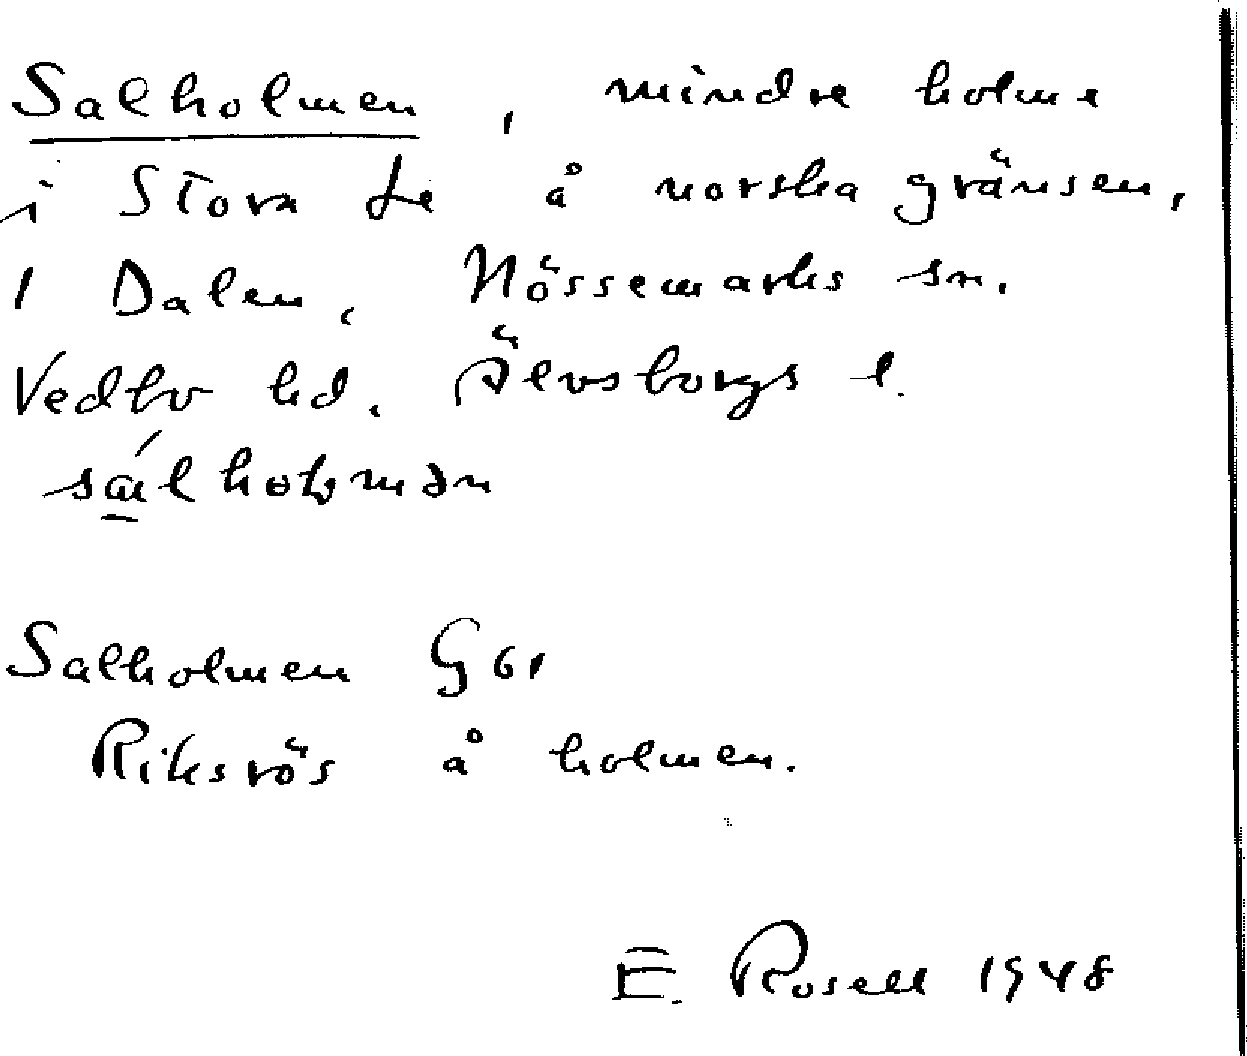 Salholmen, mindre holme
i Stora Le å norska gränsen,
1 Dalen, Nössemarks sn.
Vedbo hd. Älvsborgs l.
Salholmen G 61
Riksrös å holmen.
E. Rosell 1948